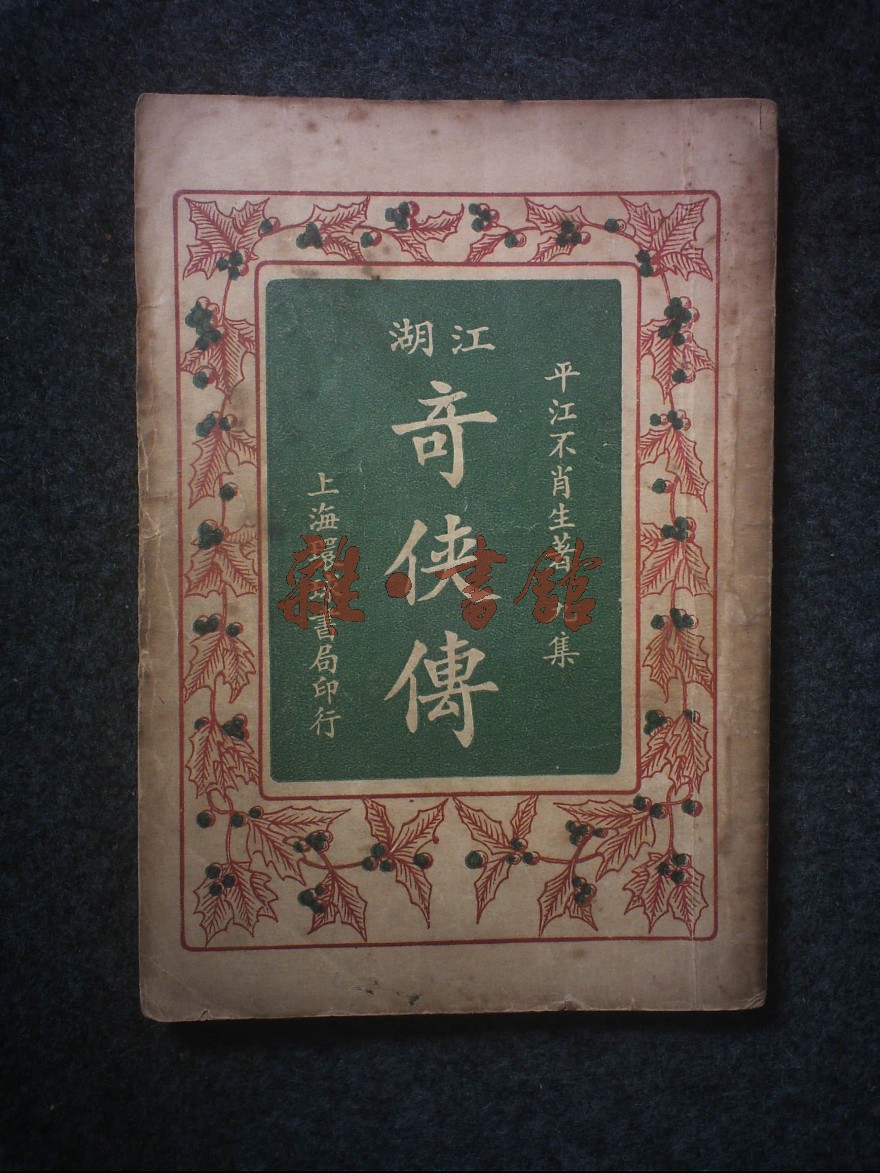 江湖
奇俠傳
平江不肖生著 集
上海環球書局印行
雜·書館